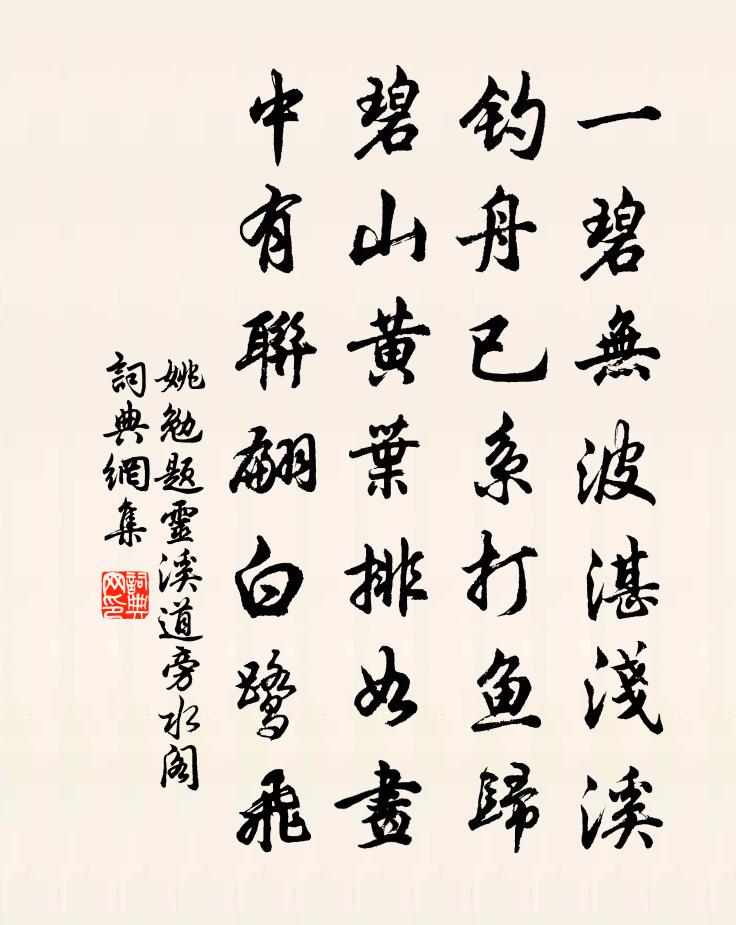 一碧無波湛淺溪
钓舟已系打魚歸
碧山黄葉排如畫
中有聯翩白鹭飛
姚勉题靈溪道旁水阁
詞典網集
詞典网印